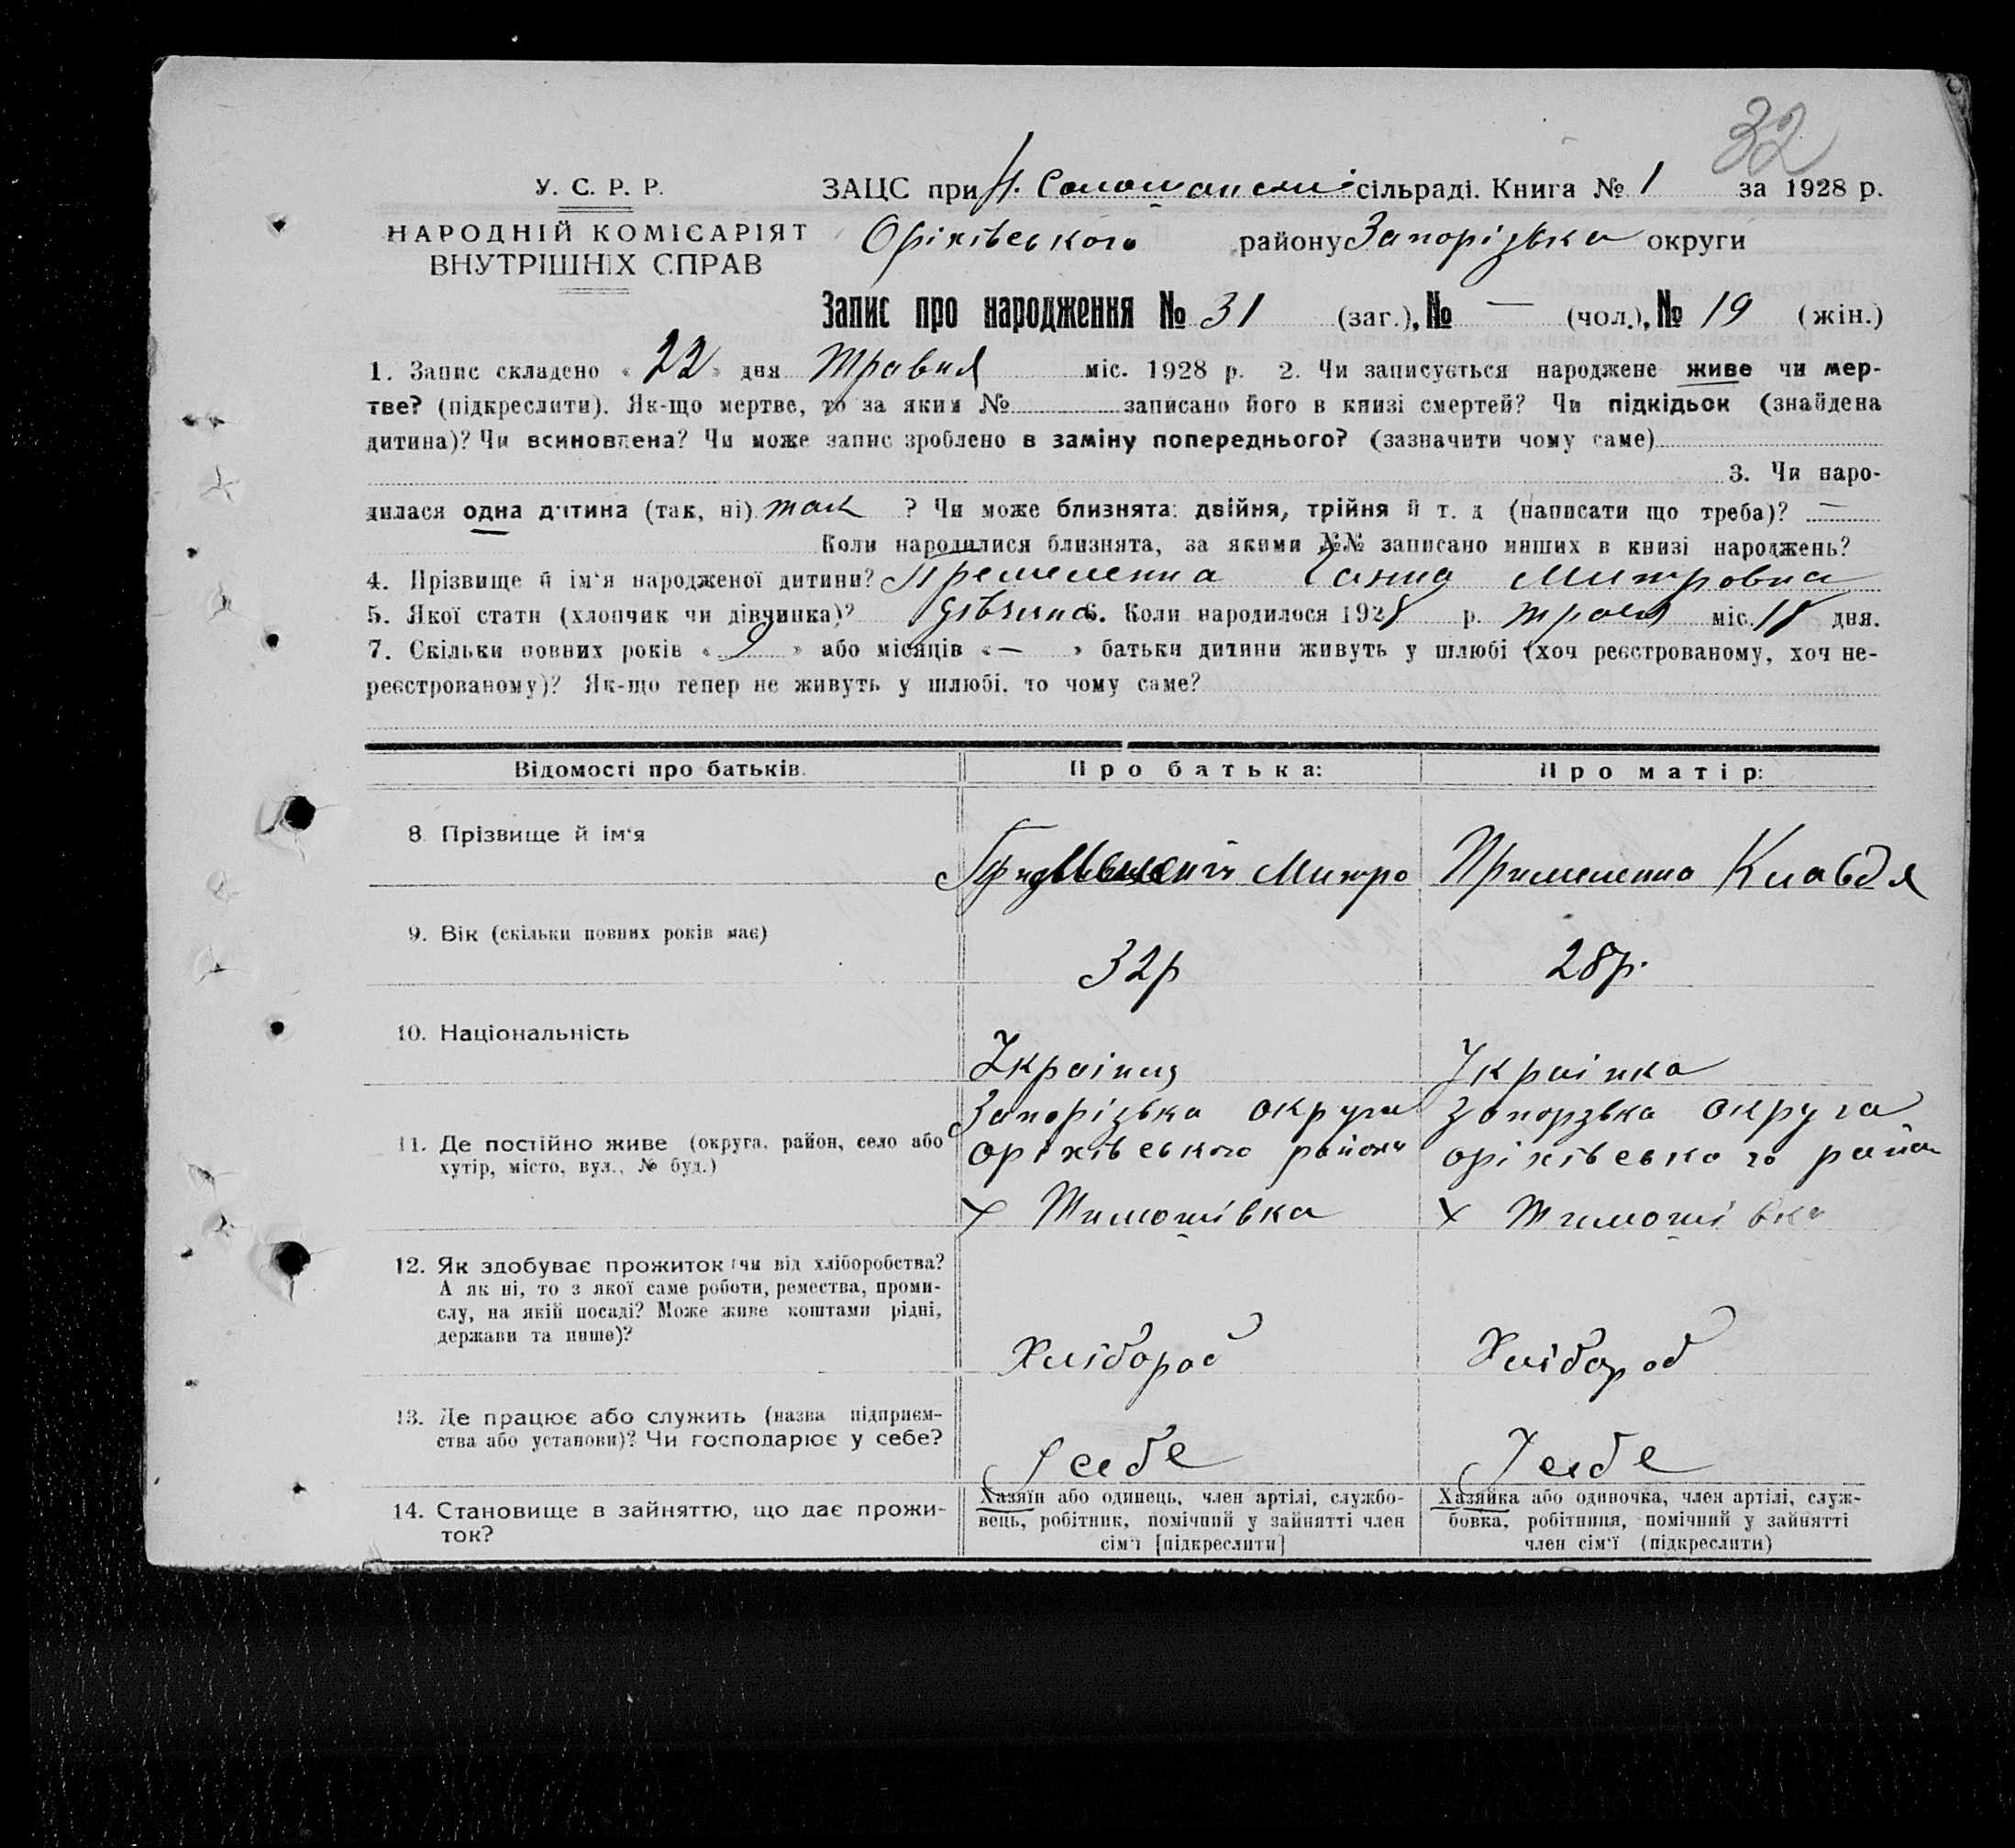 32
У. С. Р. Р.
НАРОДНІЙ КОМІСАРІЯТ
ВНУТРІШНІХ СПРАВ
ЗАЦС при сільраді. Книга № 1 за 1928 р.
Оріхівського району Запорізька округи
Запис про народження № 31 (заг.), № — (чол.), № 19 (жін.)
1. Запис складено « 22 » дня Травня міс. 1928 р. 2. Чи записується народжене живе чи мер-
тве? (підкреслити). Як-що мертве, то за яким № записано його в книзі смертей? Чи підкідьок (знайдена
дитина)? Чи всиновлена? Чи може запис зроблено в заміну попереднього? (зазначити чому саме)
3. Чи наро-
дилася одна дитина (так, ні) так ? Чи може близнята: двійня, трійня й т. д (написати що треба)? —
Коли народилися близнята, за якими №№ записано инших в книзі народжень?
4. Прізвище й ім'я народженої дитини? Ганна Митровна
5. Якої стати (хлопчик чи дівчинка)? дівчина 6. Коли народилося 1928 р. міс. дня.
7. Скільки повних років « 9 » або місяців « — » батьки дитини живуть у шлюбі (хоч реєстрованому, хоч не-
реєстрованому)? Як-що тепер не живуть у шлюбі, то чому саме?
Відомості про батьків. Про батька: Про матір:
8. Прізвище й ім'я
Митро Клавдя
9. Вік (скільки повних років має)
32р 28р.
10. Національність
Українц Українка
Запорізька округа Запорзька округа
11. Де постійно живе (округа, район, село або
хутір, місто, вул., № буд.)
Оріхівського району оріхівського район
х Тимошівка х Тимошівка
12. Як здобуває прожиток (чи від хліборобства?
А як ні, то з якої саме роботи, ремества, проми-
слу, на якій посаді? Може живе коштами рідні,
держави та инше)?
Хлібороб Хлібороб
13. Де працює або служить (назва підприєм-
ства або установи)? Чи господарює у себе?
У себе У себе
14. Становище в зайняттю, що дає прожи-
ток?
Хазяїн або одинець, член артілі, службо-
вець, робітник, помічний у зайнятті член
сім'ї [підкреслити]
Хазяйка або одиночка, член артілі, служ-
бовка, робітниця, помічний у зайнятті
член сім'ї (підкреслити)